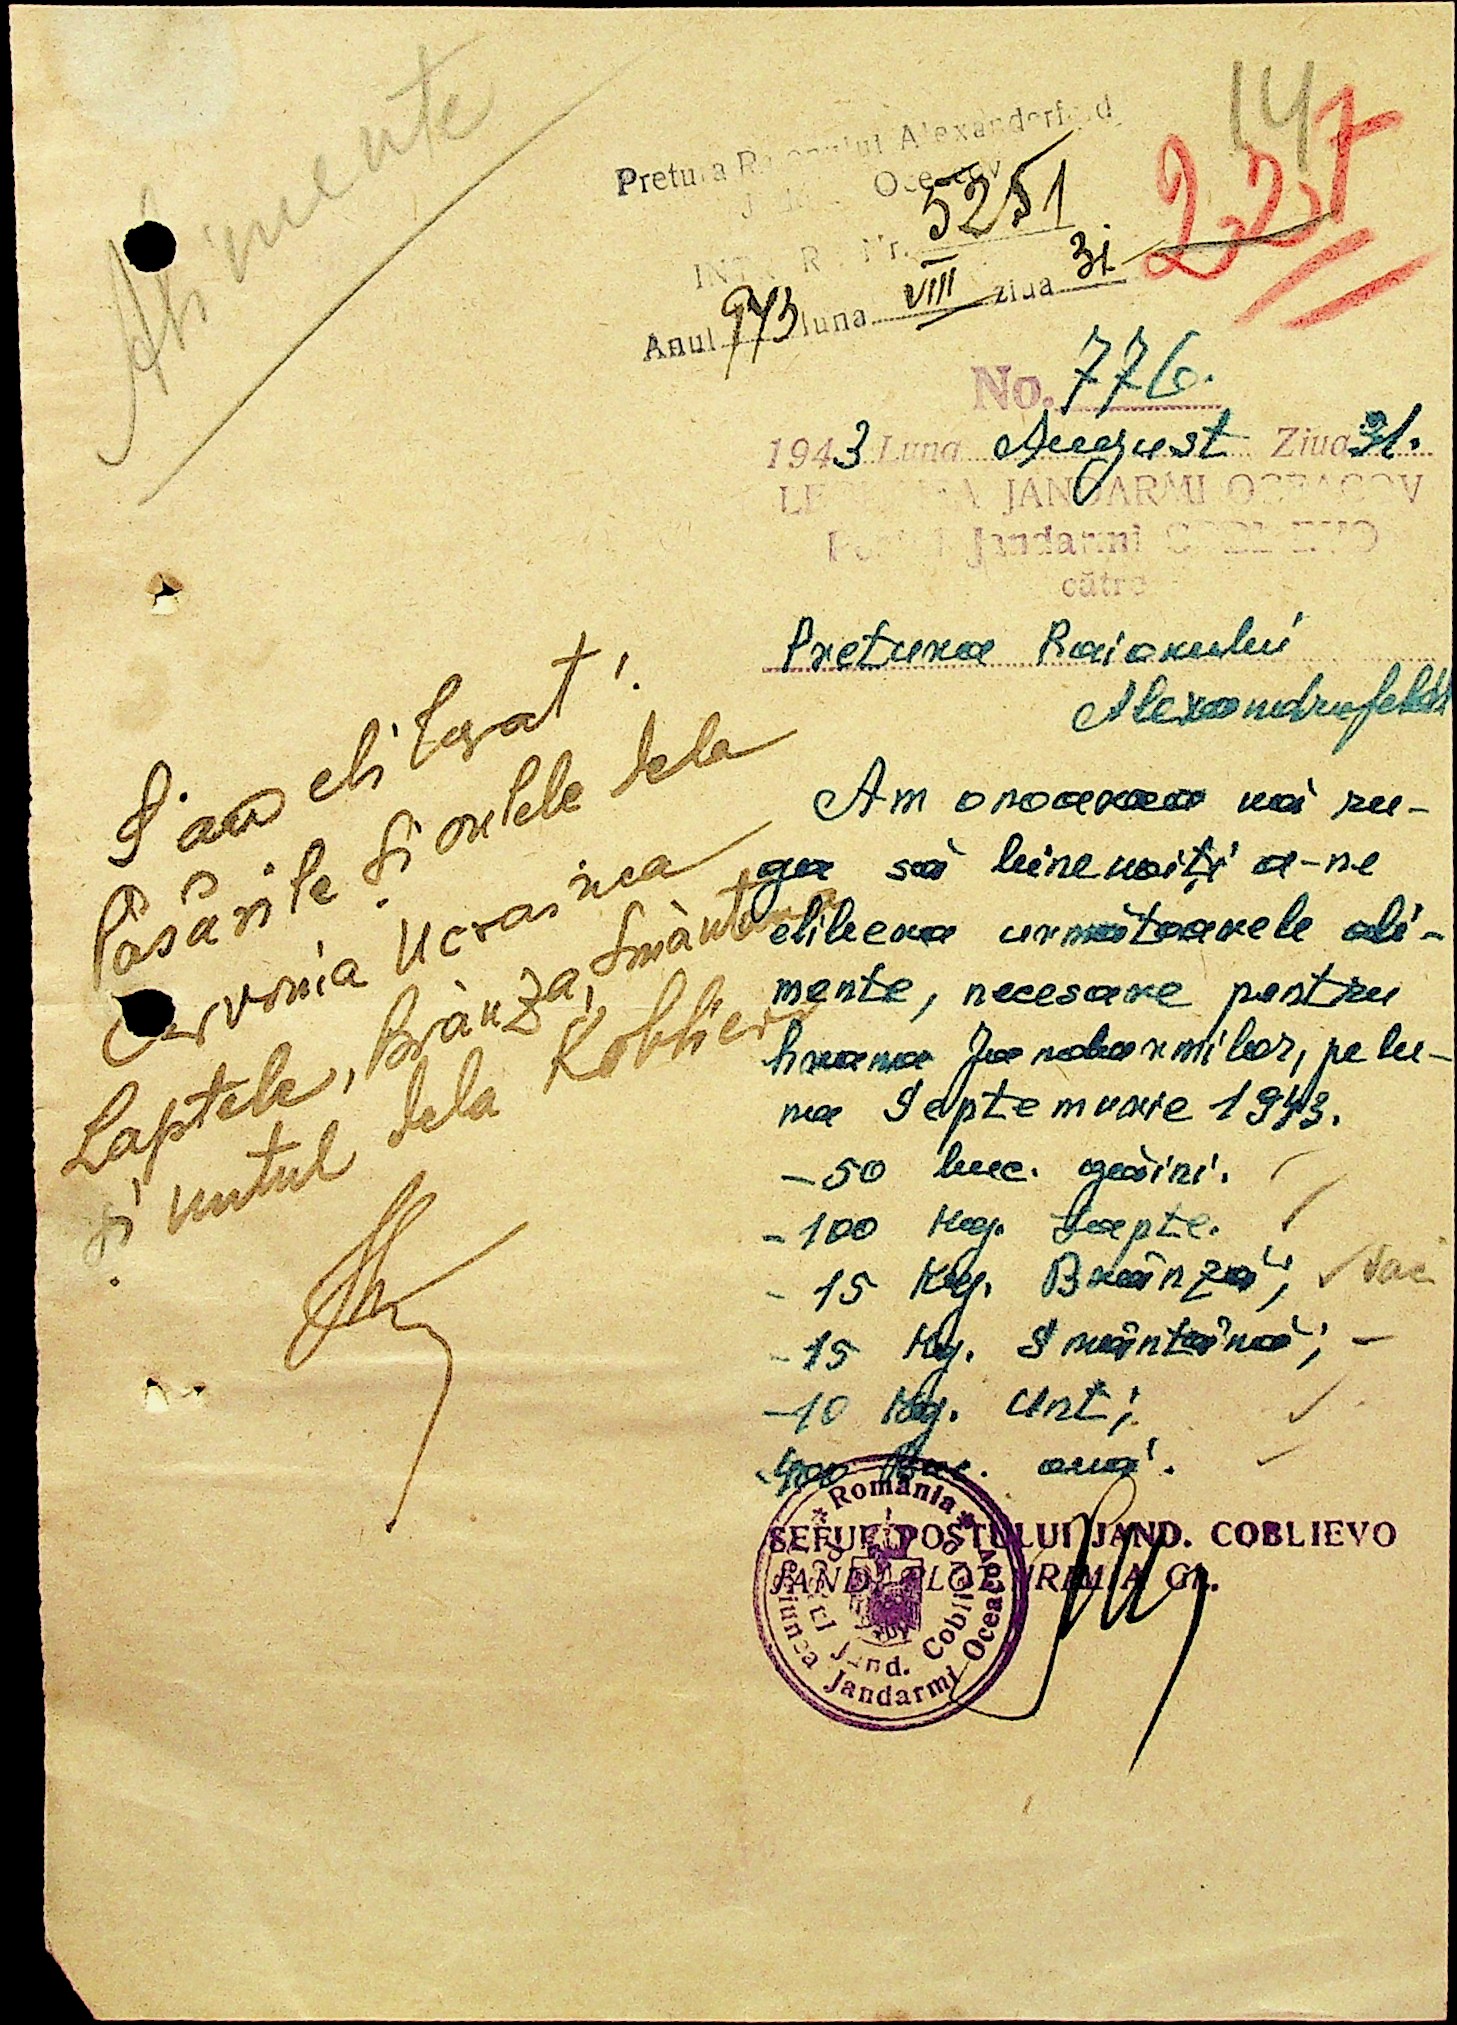 Alimente
14
227
Pretura Raionului Alexanderfeld
Oceacov
INTR Nr. 5251
Anul 943 luna VIII ziua 31
No. 776.
1943 Luna August Ziua 31.
LEGIUNEA JANDARMI OCEACOV
Postul Jandarmi COBLIEVO
către
Pretura Raionului
Alexandrufeld
Am onoarea vă ru-
ga să binevoiți a-ne
elibera următoarele ali-
mente, necesare pentru
hrana Jandarmilor, pe lu-
na Septemvrie 1943.
- 50 buc. găini.
- 100 Kg. Lapte.
- 15 Kg. Brânză;
- 15 Kg. Smântână;
- 10 Kg. Unt;
400 Buc. ouă.
SEFUL POSTULUI JAND. COBLIEVO
JAND. PLOT.
România
Legiunea Jandarmi Oceacov
Postul Jand. Coblievo
S'au eliberat
Păsările și ouăle dela
Cervonia Ucrainca
Laptele, Brânza, Smântâna
și untul dela Koblievo